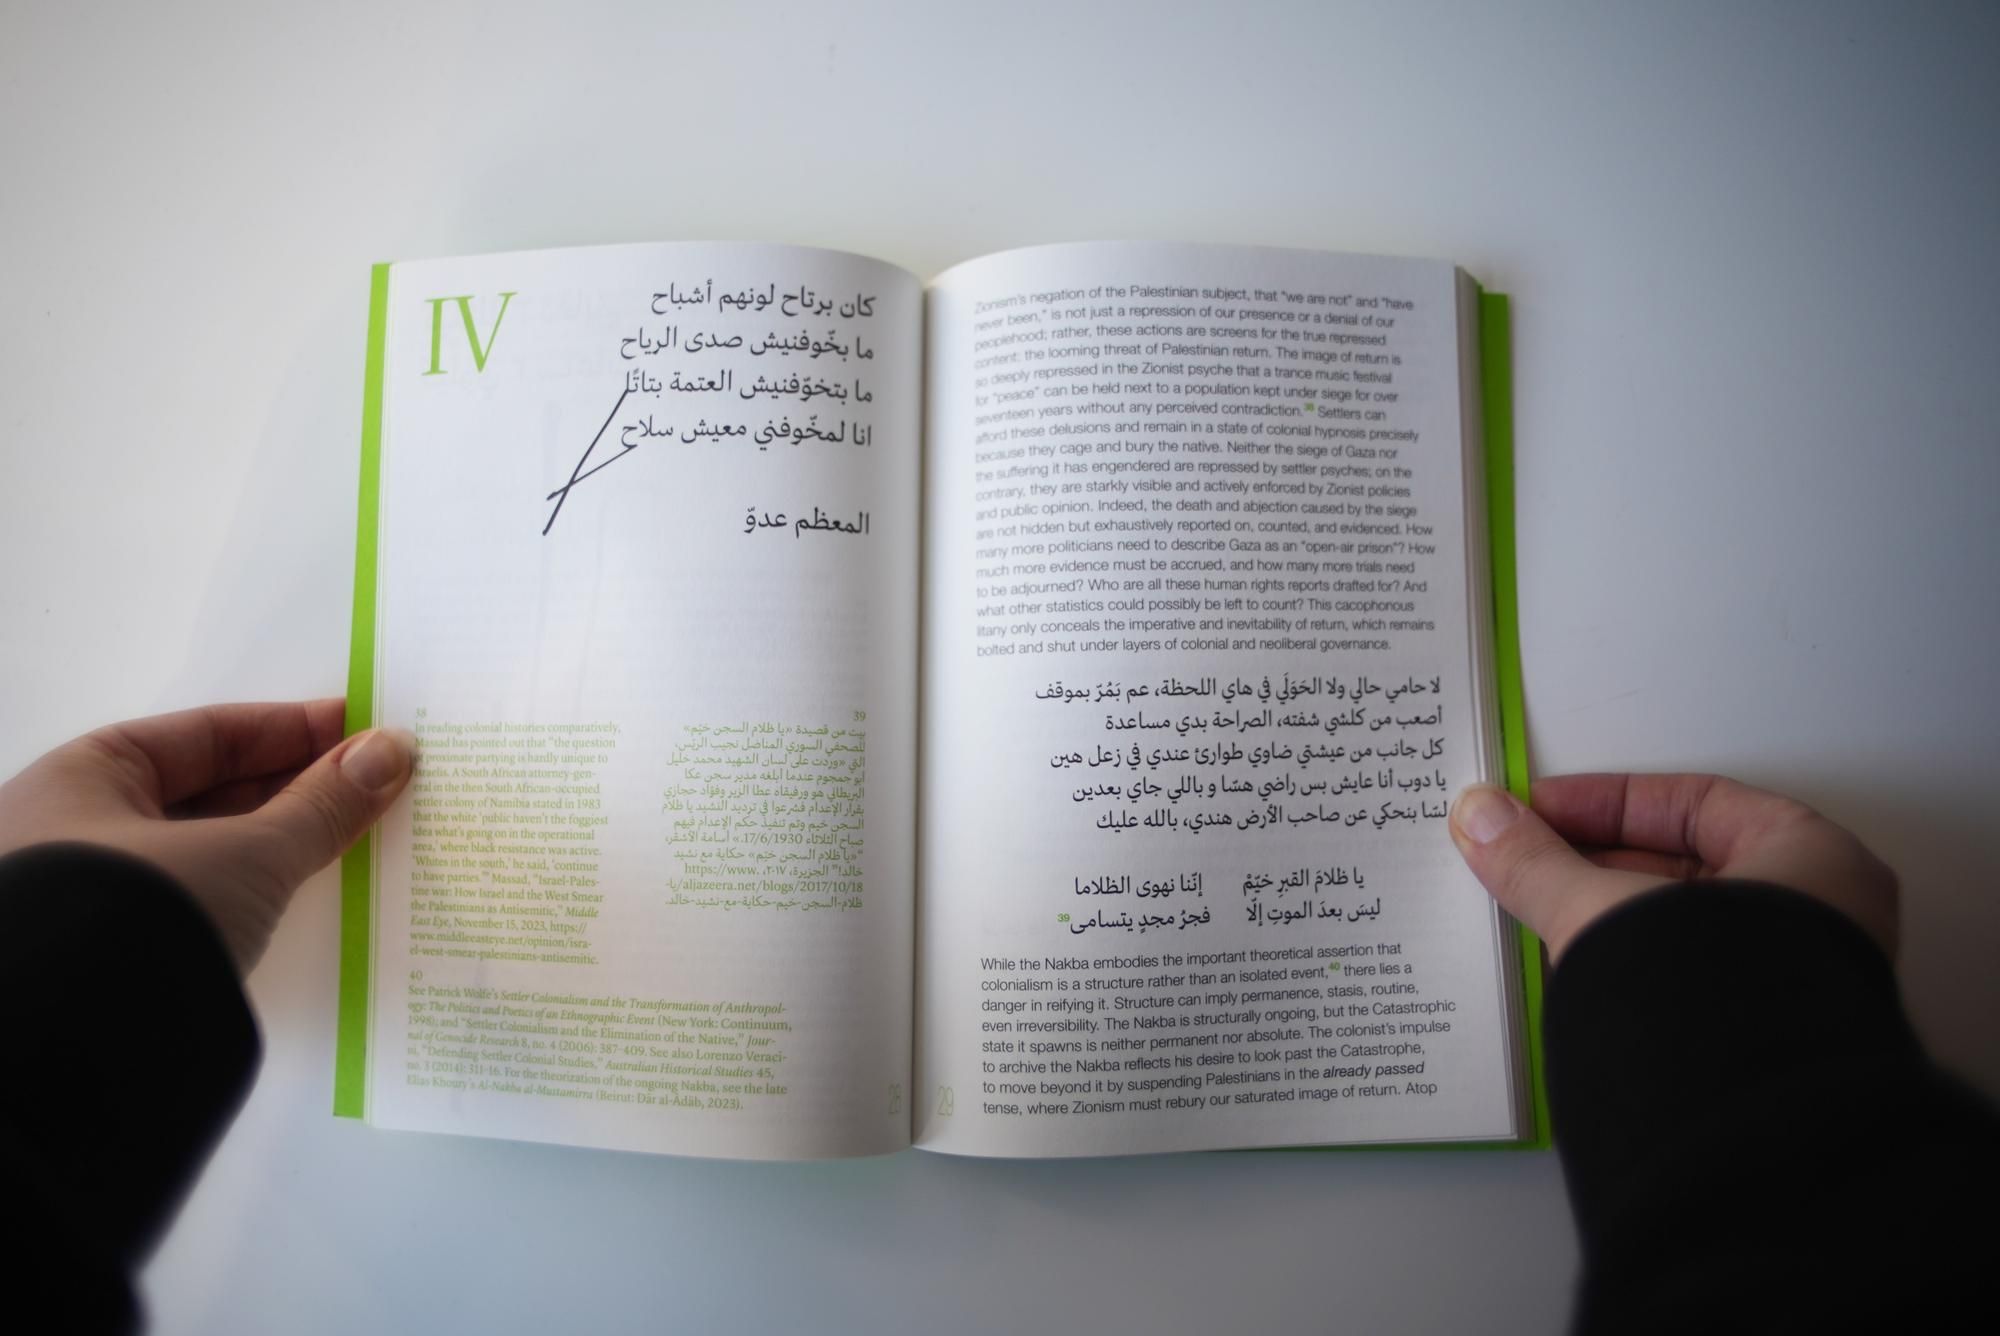 IV
كان برتاح لونهم أشباح
ما بخّوفنيش صدى الرياح
ما بتخوّفنيش العتمة بتاتًا
انا لمخّوفني معيش سلاح
المعظم عدوّ
38
In reading colonial histories comparatively,
Massad has pointed out that “the question
of proximate partying is hardly unique to
Israelis. A South African attorney-gen-
eral in the then South African-occupied
settler colony of Namibia stated in 1983
that the white ‘public haven’t the foggiest
idea what’s going on in the operational
area,’ where black resistance was active.
‘Whites in the south,’ he said, ‘continue
to have parties.’” Massad, “Israel-Pales-
tine war: How Israel and the West Smear
the Palestinians as Antisemitic,” Middle
East Eye, November 15, 2023, https://
www.middleeasteye.net/opinion/isra-
el-west-smear-palestinians-antisemitic.
39
بيت من قصيدة «يا ظلام السجن خيّم»
للصحفي السوري المناضل نجيب الريّس،
التي «وردت على لسان الشهيد محمد خليل
أبو جمجوم عندما أبلغه مدير سجن عكا
البريطاني هو ورفيقاه عطا الزير وفؤاد حجازي
بقرار الإعدام فشرعوا في ترديد النشيد يا ظلام
السجن خيم وتم تنفيذ حكم الإعدام فيهم
صباح الثلاثاء 17/6/1930.» أسامة الأشقر،
“«يا ظلام السجن خيّم» حكاية مع نشيد
خالد!” الجزيرة، ٢٠١٧، https://www.
aljazeera.net/blogs/2017/10/18/يا-
ظلام-السجن-خيم-حكاية-مع-نشيد-خالد.
40
See Patrick Wolfe’s Settler Colonialism and the Transformation of Anthropol-
ogy: The Politics and Poetics of an Ethnographic Event (New York: Continuum,
1998); and “Settler Colonialism and the Elimination of the Native,” Jour-
nal of Genocide Research 8, no. 4 (2006): 387–409. See also Lorenzo Veraci-
ni, “Defending Settler Colonial Studies,” Australian Historical Studies 45,
no. 3 (2014): 311-16. For the theorization of the ongoing Nakba, see the late
Elias Khoury’s Al-Nakba al-Mustamirra (Beirut: Dār al-Ādāb, 2023).
28
Zionism’s negation of the Palestinian subject, that “we are not” and “have
never been,” is not just a repression of our presence or a denial of our
peoplehood; rather, these actions are screens for the true repressed
content: the looming threat of Palestinian return. The image of return is
so deeply repressed in the Zionist psyche that a trance music festival
for “peace” can be held next to a population kept under siege for over
seventeen years without any perceived contradiction.38 Settlers can
afford these delusions and remain in a state of colonial hypnosis precisely
because they cage and bury the native. Neither the siege of Gaza nor
the suffering it has engendered are repressed by settler psyches; on the
contrary, they are starkly visible and actively enforced by Zionist policies
and public opinion. Indeed, the death and abjection caused by the siege
are not hidden but exhaustively reported on, counted, and evidenced. How
many more politicians need to describe Gaza as an “open-air prison”? How
much more evidence must be accrued, and how many more trials need
to be adjourned? Who are all these human rights reports drafted for? And
what other statistics could possibly be left to count? This cacophonous
litany only conceals the imperative and inevitability of return, which remains
bolted and shut under layers of colonial and neoliberal governance.
لا حامي حالي ولا الحَوَلَي في هاي اللحظة، عم بَمُرّ بموقف
أصعب من كلشي شفته، الصراحة بدي مساعدة
كل جانب من عيشتي ضاوي طوارئ عندي في زعل هين
يا دوب أنا عايش بس راضي هسّا و باللي جاي بعدين
لسّا بنحكي عن صاحب الأرض هندي، بالله عليك
يا ظلامَ القبرِ خيّمْ إنّنا نهوى الظلاما
ليسَ بعدَ الموتِ إلّا فجرُ مجدٍ يتسامى39
While the Nakba embodies the important theoretical assertion that
colonialism is a structure rather than an isolated event,40 there lies a
danger in reifying it. Structure can imply permanence, stasis, routine,
even irreversibility. The Nakba is structurally ongoing, but the Catastrophic
state it spawns is neither permanent nor absolute. The colonist’s impulse
to archive the Nakba reflects his desire to look past the Catastrophe,
to move beyond it by suspending Palestinians in the already passed
tense, where Zionism must rebury our saturated image of return. Atop
29